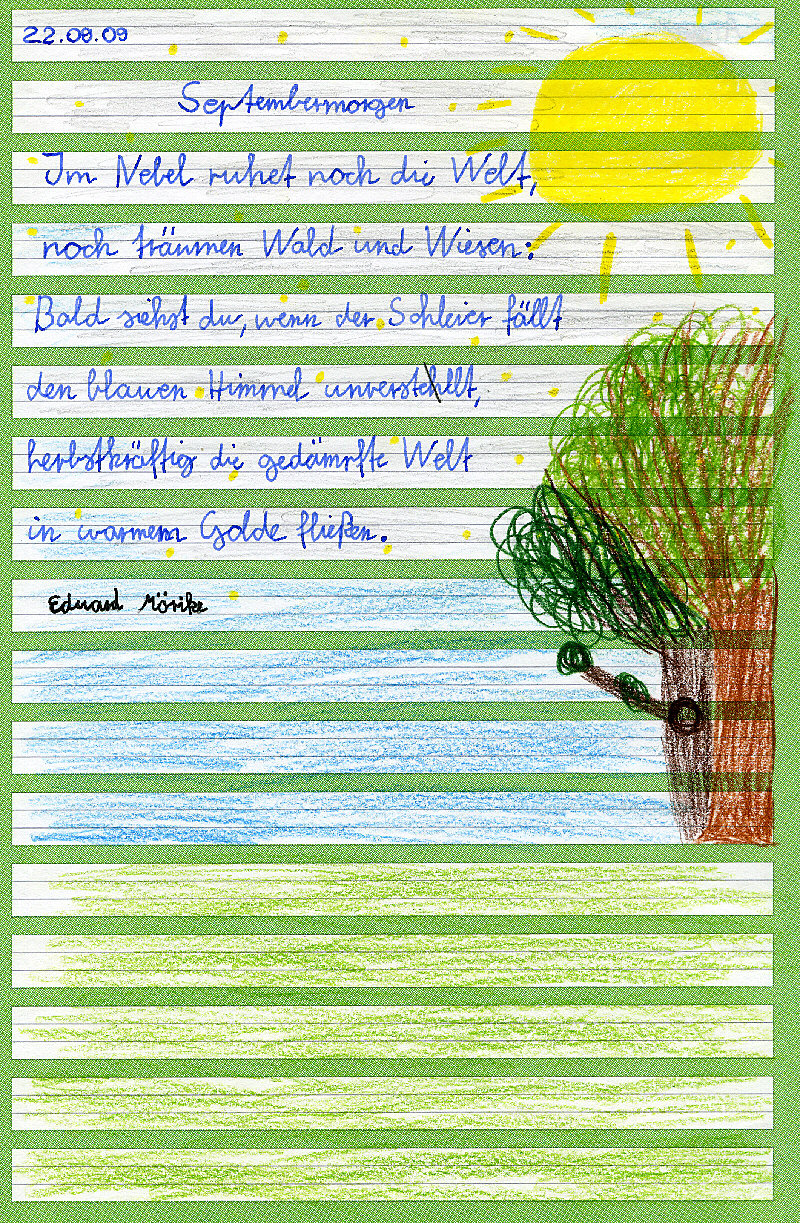 22.09.09
Septembermorgen
Im Nebel ruhet noch die Welt,
noch träumen Wald und Wiesen:
Bald siehst du, wenn der Schleier fällt
den blauen Himmel unverstellt,
herbstkräftig die gedämpfte Welt
in warmem Golde fließen.
Eduard Mörike